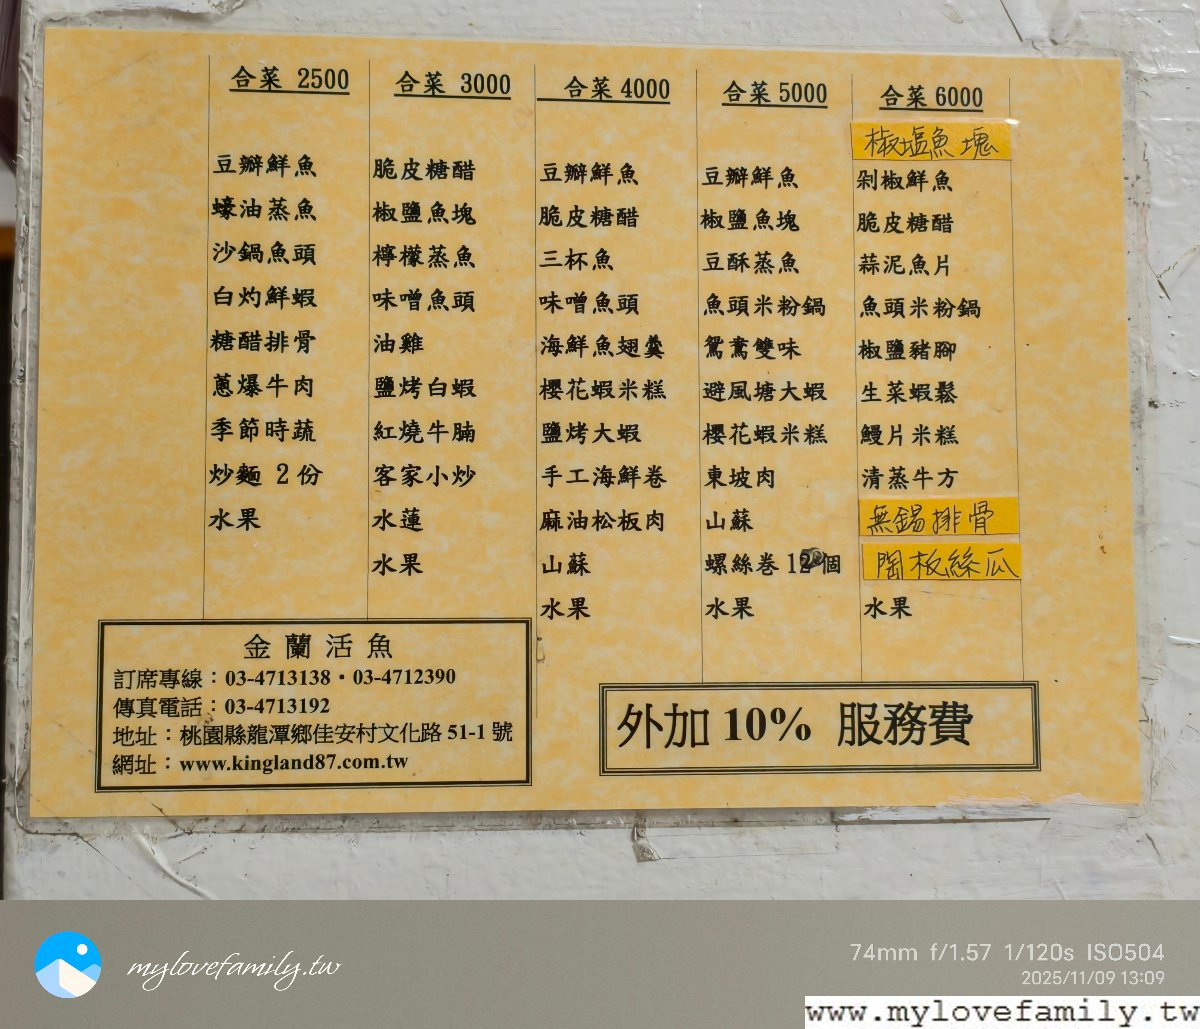 合菜 2500
豆瓣鮮魚
蠔油蒸魚
沙鍋魚頭
白灼鮮蝦
糖醋排骨
蔥爆牛肉
季節時蔬
炒麵 2 份
水果
合菜 3000
脆皮糖醋
椒鹽魚塊
檸檬蒸魚
味噌魚頭
油雞
鹽烤白蝦
紅燒牛腩
客家小炒
水蓮
水果
合菜 4000
豆瓣鮮魚
脆皮糖醋
三杯魚
味噌魚頭
海鮮魚翅羹
櫻花蝦米糕
鹽烤大蝦
手工海鮮卷
麻油松板肉
山蘇
水果
合菜 5000
豆瓣鮮魚
椒鹽魚塊
豆酥蒸魚
魚頭米粉鍋
鴛鴦雙味
避風塘大蝦
櫻花蝦米糕
東坡肉
山蘇
螺絲卷 12個
水果
合菜 6000
椒塩魚塊
剁椒鮮魚
脆皮糖醋
蒜泥魚片
魚頭米粉鍋
椒鹽豬腳
生菜蝦鬆
鰻片米糕
清蒸牛方
無錫排骨
陶板絲瓜
水果
金蘭活魚
訂席專線：03-4713138‧03-4712390
傳真電話：03-4713192
地址：桃園縣龍潭鄉佳安村文化路 51-1 號
網址：www.kingland87.com.tw
外加 10% 服務費
mylovefamily.tw
74mm f/1.57 1/120s ISO504
2025/11/09 13:09
www.mylovefamily.tw